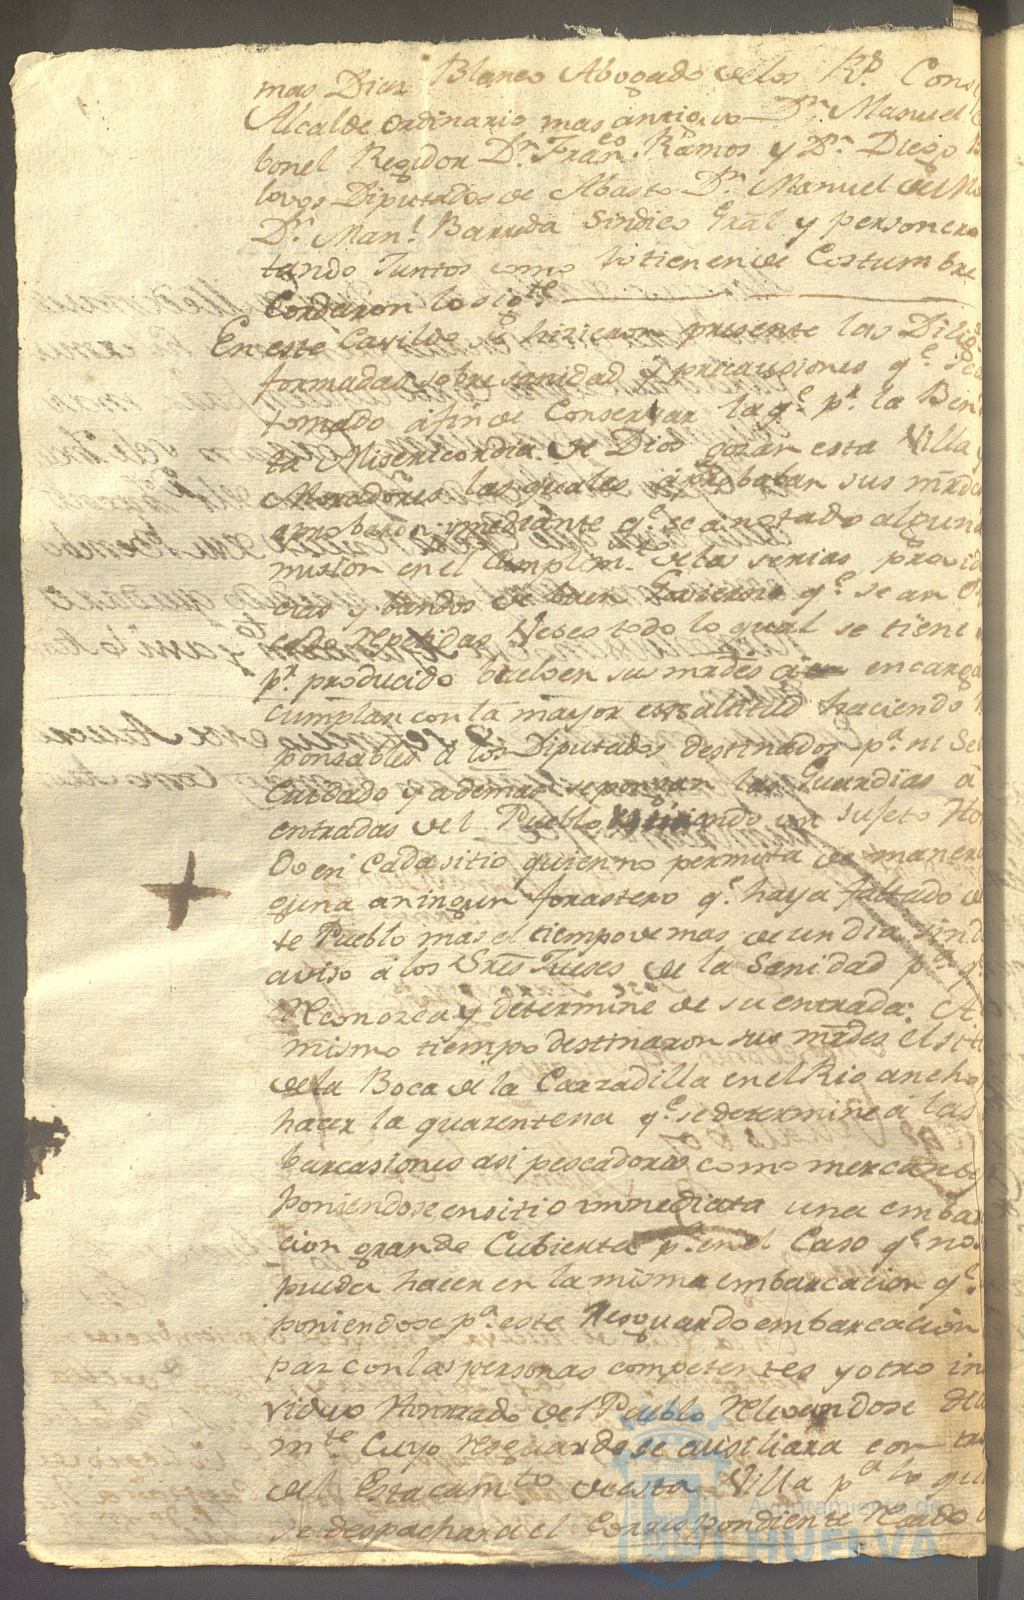 mas Diaz Blanco Abogado de los Rs. Cons
Alcalde ordinario mas antiguo Dn. Manuel
bonel Regidor Dn. Franco. Ramos y Dn. Diego
lovos Diputados de Abasto Dn. Manuel de
Dn. Manl. Barreda Sindico Gral y personero
tando Juntos como lo tienen de Costumbre
Cordaron lo sigte
En este Cavildo se hizieron presente las Dilig
formadas sobre sanidad y precauciones qe. se
tomado á fin de Conservar la qe. pr. la Ben
ta Misericordia de Dios gozan esta Villa y
Moradores las quales aprobaban sus mrds
aprobaron; y mediante qe. se a notado alguna
mision en el Cumplimto. de las serias provid
cias y bandos de buen Govierno qe. se an
repetidas Veses todo lo qual se tiene
pr. producido buelven sus mrdes a encarga
cumplan con la mayor essactitud haciendo
ponsables á los Diputados destinados pa. ni
Cuidado y ademas se pongan las Guardias á
entradas del Pueblo un sujeto Ho
do en Cada sitio quien no permita de maner
guna aningun forastero qe. haya faltado
te Pueblo mas el tiempo de mas de un dia sin d
aviso á los Sres Jueses de la Sanidad pa. qe.
Reconozca y determine de su entrada: A
mismo tiempo destinaron sus mrdes el siti
de la Boca de la Cazzadilla en el Rio ancho
hacer la quarentena qe. se determine á las
barcasiones asi pescadoras como mercante
Poniendose en sitio immediata una embar
cion grande Cubierta pa. en el Caso qe. no
pueda hacer en la misma embarcacion qe.
poniendose pa. este Resguardo embarcacion
paz con las personas competentes y otro in
viduo Honrrado del Pueblo Relevandose
mte Cuyo Resguardo se ausiliara con
del Estacamto de esta Villa pa lo que
se despachara el Correspondiente Recado
Ayuntamiento de
HUELVA